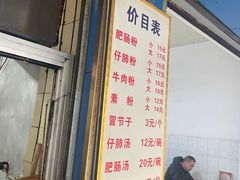 价目表
肥肠粉 小 15元
大 17元
仔肺粉 小 15元
大 17元
牛肉粉 小 16元
大 18元
素粉 小 12元
大 14元
冒节子 3元/个
仔肺汤 12元/碗
肥肠汤 20元/碗